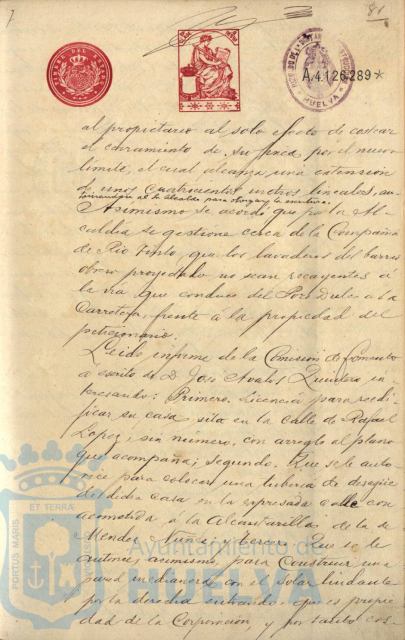 7
81
TIMBRE DEL ESTADO
A.4.126.289*
HUELVA
al propietario al solo efecto de costear
el cerramiento de su finca por el nuevo
limite, el cual alcanza una extension
de unos cuatrocientos metros lineales, au-
torizandose al Sr Alcalde para otorgar la escritura.
Asimismo se acordó que por la Al-
caldia se gestione cerca de la Compañia
de Rio Tinto, que los lavaderos del barrio
obrero proyectado no sean recayentes á
la via que conduce del Porsdules á la
Carretera, frente á la propiedad del
peticionario.
Leido informe de la Comision de Fomento
a escrito de D. José Avalos Quintero in-
teresando: Primero. Licencia para reedi-
ficar su casa sita en la calle de Rafael
Lopez, sin numero, con arreglo al plano
que acompaña; segundo. Que se le auto-
rice para colocar una tuberia de desagüe
de dicha casa en la expresada calle con
acometida a la Alcantarilla de la de
Mendez Nuñez y tercero. Que se le
autorice, asimismo, para construir una
pared medianera con el solar lindante
por la derecha entrando, que es propie-
dad de la Corporación, y por tanto cos-
ET TERRA
PORTUS MARIS
Ayuntamiento de
HUELVA